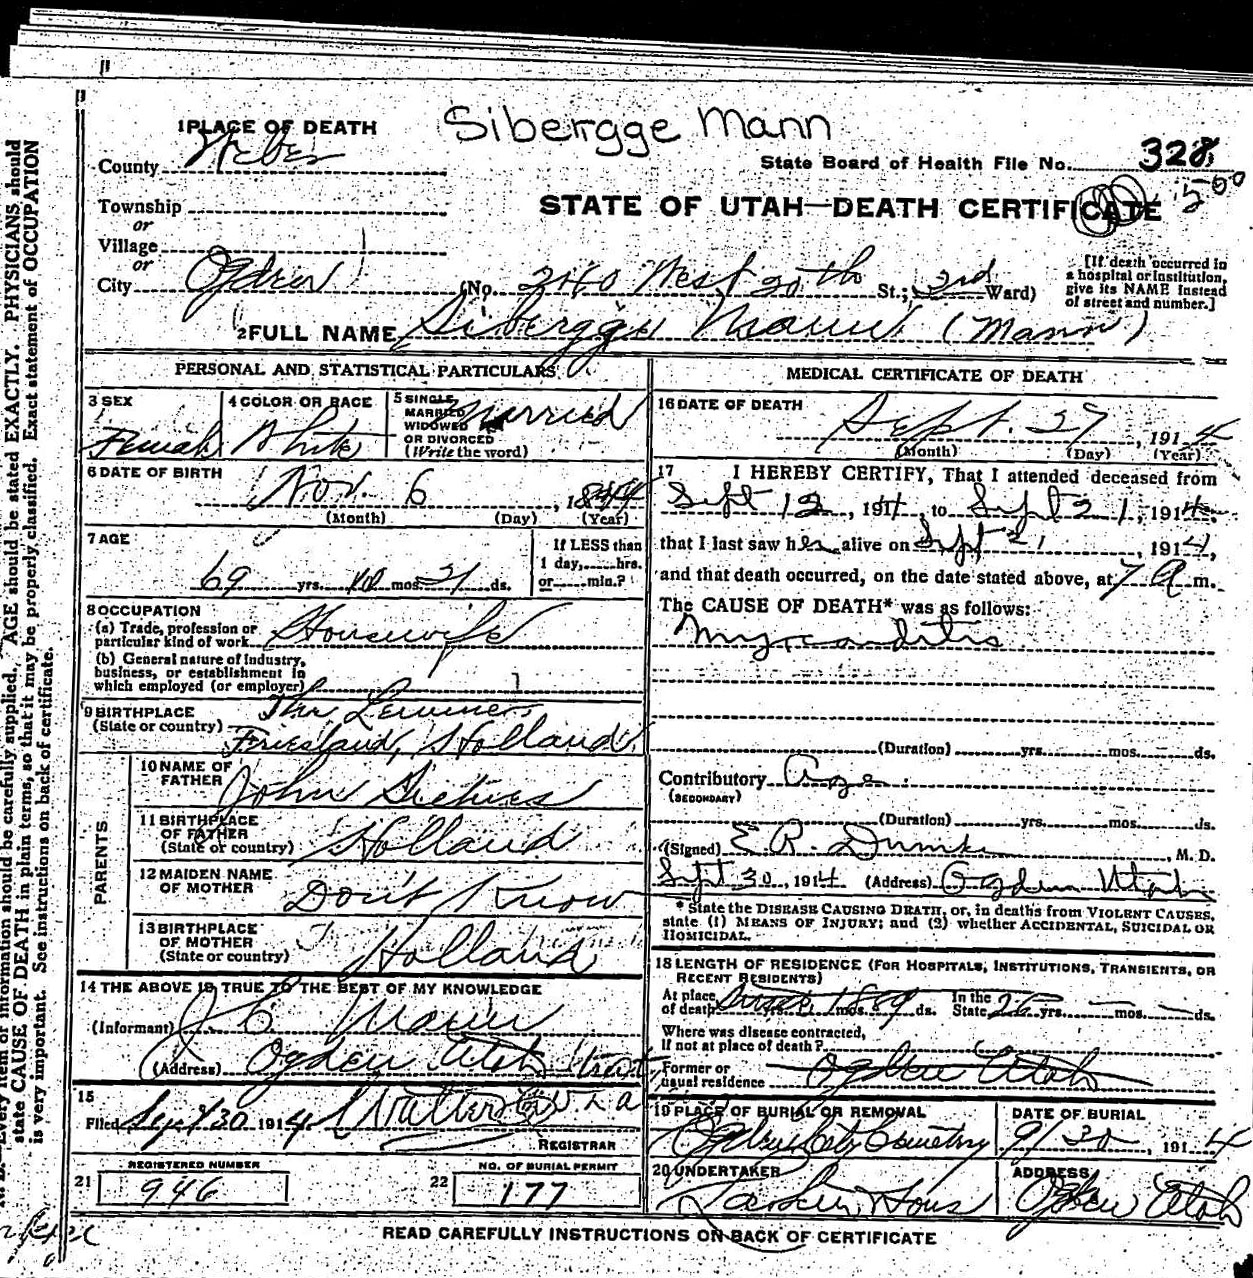 Sibergge Mann
1 PLACE OF DEATH
County Weber
State Board of Health File No. 328
500
STATE OF UTAH—DEATH CERTIFICATE
Township
or
Village
or
City Ogden (No. West 20th St.; 3rd Ward)
[If death occurred in
a hospital or institution,
give its NAME instead
of street and number.]
2 FULL NAME Sibergge (Mann)
PERSONAL AND STATISTICAL PARTICULARS
3 SEX
Female
4 COLOR OR RACE
White
5 SINGLE,
MARRIED
WIDOWED
OR DIVORCED
(Write the word)
Married
6 DATE OF BIRTH
Nov. 6, 1844
(Month) (Day) (Year)
7 AGE
69 yrs. 10 mos. 21 ds.
If LESS than
1 day, hrs.
or min.?
8 OCCUPATION
(a) Trade, profession or
particular kind of work Housewife
(b) General nature of industry,
business, or establishment in
which employed (or employer)
9 BIRTHPLACE
(State or country)
Friesland, Holland
PARENTS
10 NAME OF
FATHER
John
11 BIRTHPLACE
OF FATHER
(State or country) Holland
12 MAIDEN NAME
OF MOTHER
Don't Know
13 BIRTHPLACE
OF MOTHER
(State or country) Holland
14 THE ABOVE IS TRUE TO THE BEST OF MY KNOWLEDGE
(Informant)
(Address) Ogden Utah
15
Filed Sept 30 1914
REGISTRAR
21 REGISTERED NUMBER
946
22 NO. OF BURIAL PERMIT
177
MEDICAL CERTIFICATE OF DEATH
16 DATE OF DEATH
Sept. 27, 1914
(Month) (Day) (Year)
17 I HEREBY CERTIFY, That I attended deceased from
Sept 12, 1914, to Sept 21, 1914,
that I last saw her alive on Sept 21, 1914,
and that death occurred, on the date stated above, at 7 A m.
The CAUSE OF DEATH* was as follows:
Myocarditis
(Duration) yrs. mos. ds.
Contributory Age
(SECONDARY)
(Duration) yrs. mos. ds.
(Signed) E. R. Dumke, M. D.
Sept 30, 1914 (Address) Ogden Utah
* State the DISEASE CAUSING DEATH, or, in deaths from VIOLENT CAUSES,
state (1) MEANS OF INJURY; and (2) whether ACCIDENTAL, SUICIDAL OR
HOMICIDAL.
18 LENGTH OF RESIDENCE (FOR HOSPITALS, INSTITUTIONS, TRANSIENTS, OR
RECENT RESIDENTS)
At place
of death Since 1889 yrs. mos. ds. In the
State yrs. mos. ds.
Where was disease contracted,
if not at place of death?
Former or
usual residence Ogden Utah
19 PLACE OF BURIAL OR REMOVAL
Ogden City Cemetery
DATE OF BURIAL
9/30, 1914
20 UNDERTAKER
Larkin & Sons
ADDRESS
Ogden Utah
READ CAREFULLY INSTRUCTIONS ON BACK OF CERTIFICATE
Every item of information should be carefully supplied. AGE should be stated EXACTLY. PHYSICIANS should
state CAUSE OF DEATH in plain terms, so that it may be properly classified. Exact statement of OCCUPATION
is very important. See instructions on back of certificate.